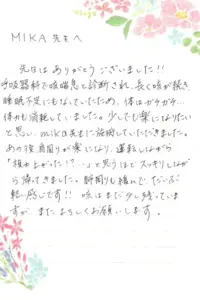 MIKA 先生へ
先日はありがとうございました!!
呼吸器科で咳喘息と診断され、長く咳が続き
睡眠不足にもなっていたため、体はガチガチ…
体力も消耗していました。少しでも楽になりたい
と思い、mika先生に施術していただきました。
あの後肩周りが楽になり、運転しながら
「根っ上がった!?…」と思うほどスッキリしなが
ら帰ってきました。首周りも緩んで、だいぶ
軽い感じです!! 咳はまだ少し残っていま
すが、またよろしくお願いします。